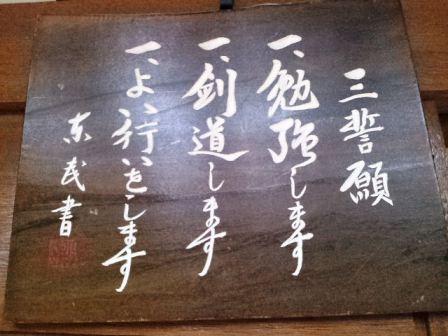 三誓願
一、勉強します
一、剣道します
一、よい行いをします
京武書